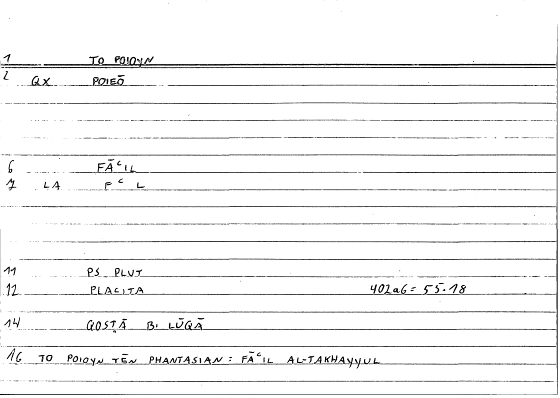 1 TO POIOYN
2 QX POIEŌ
6 FĀᶜIL
7 LA FᶜL
11 PS. PLUT
12 PLACITA 402a6 = 55.18
14 QOSṬĀ B. LŪQĀ
16 TO POIOYN TĒN PHANTASIAN : FĀᶜIL AL-TAKHAYYUL